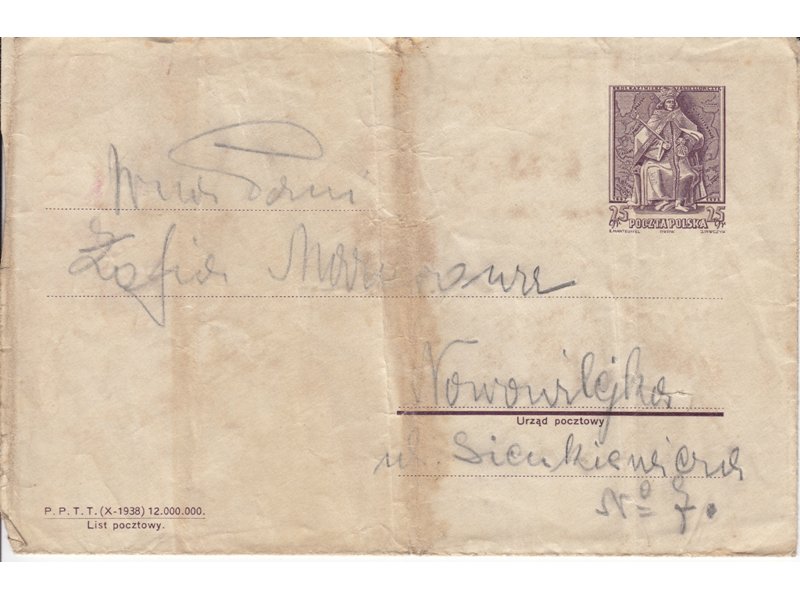 KRÓL KAZIMIERZ JAGIELLOŃCZYK
25 gr POCZTA POLSKA 25 gr
Pani
Zofia
Nowowilejka
Urząd pocztowy
ul. Sienkiewicza
№ 7.
P. P. T. T. (X-1938) 12.000.000.
List pocztowy.